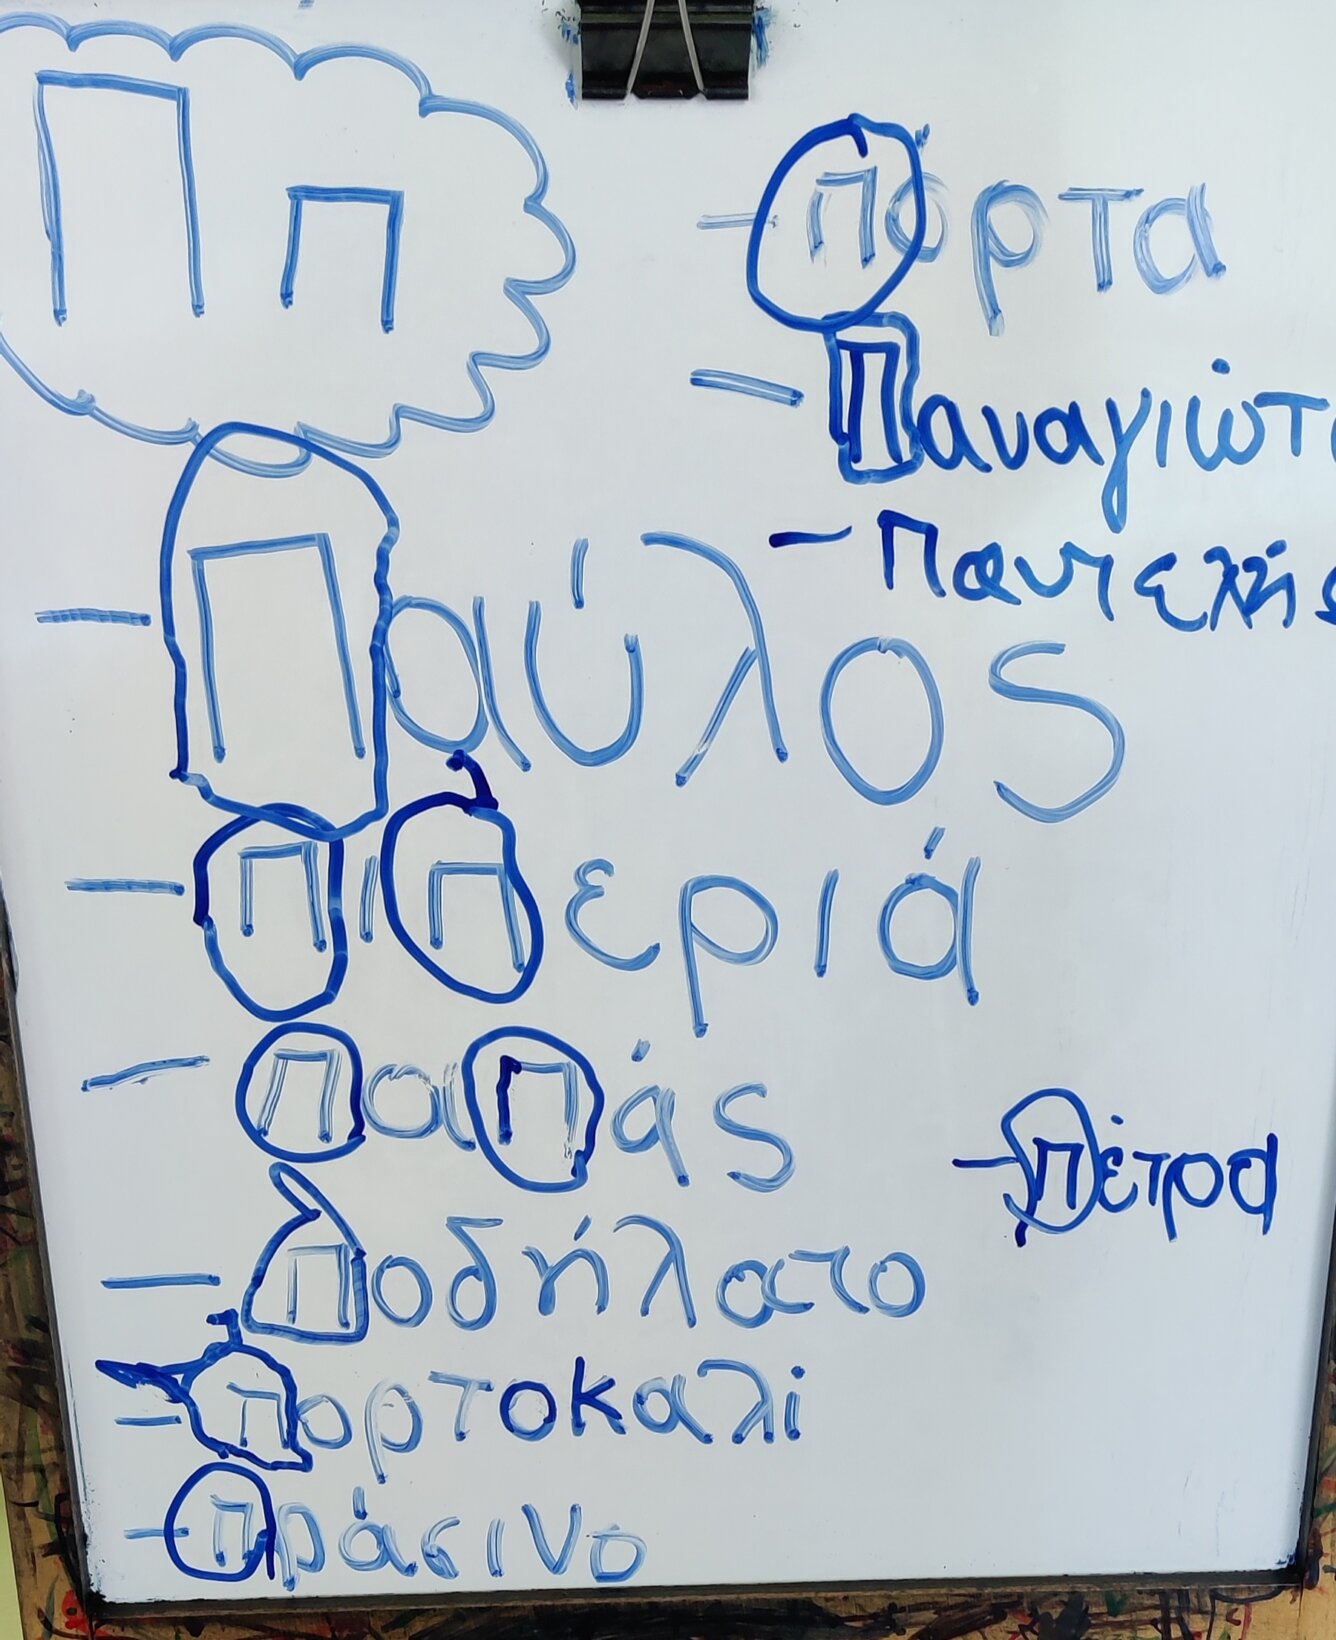 Π π
- Παύλος
- πιπεριά
- παπάς
- ποδήλατο
- πορτοκαλί
- πράσινο
- πόρτα
- Παναγιώτ
- Παντελής
- πέτρα